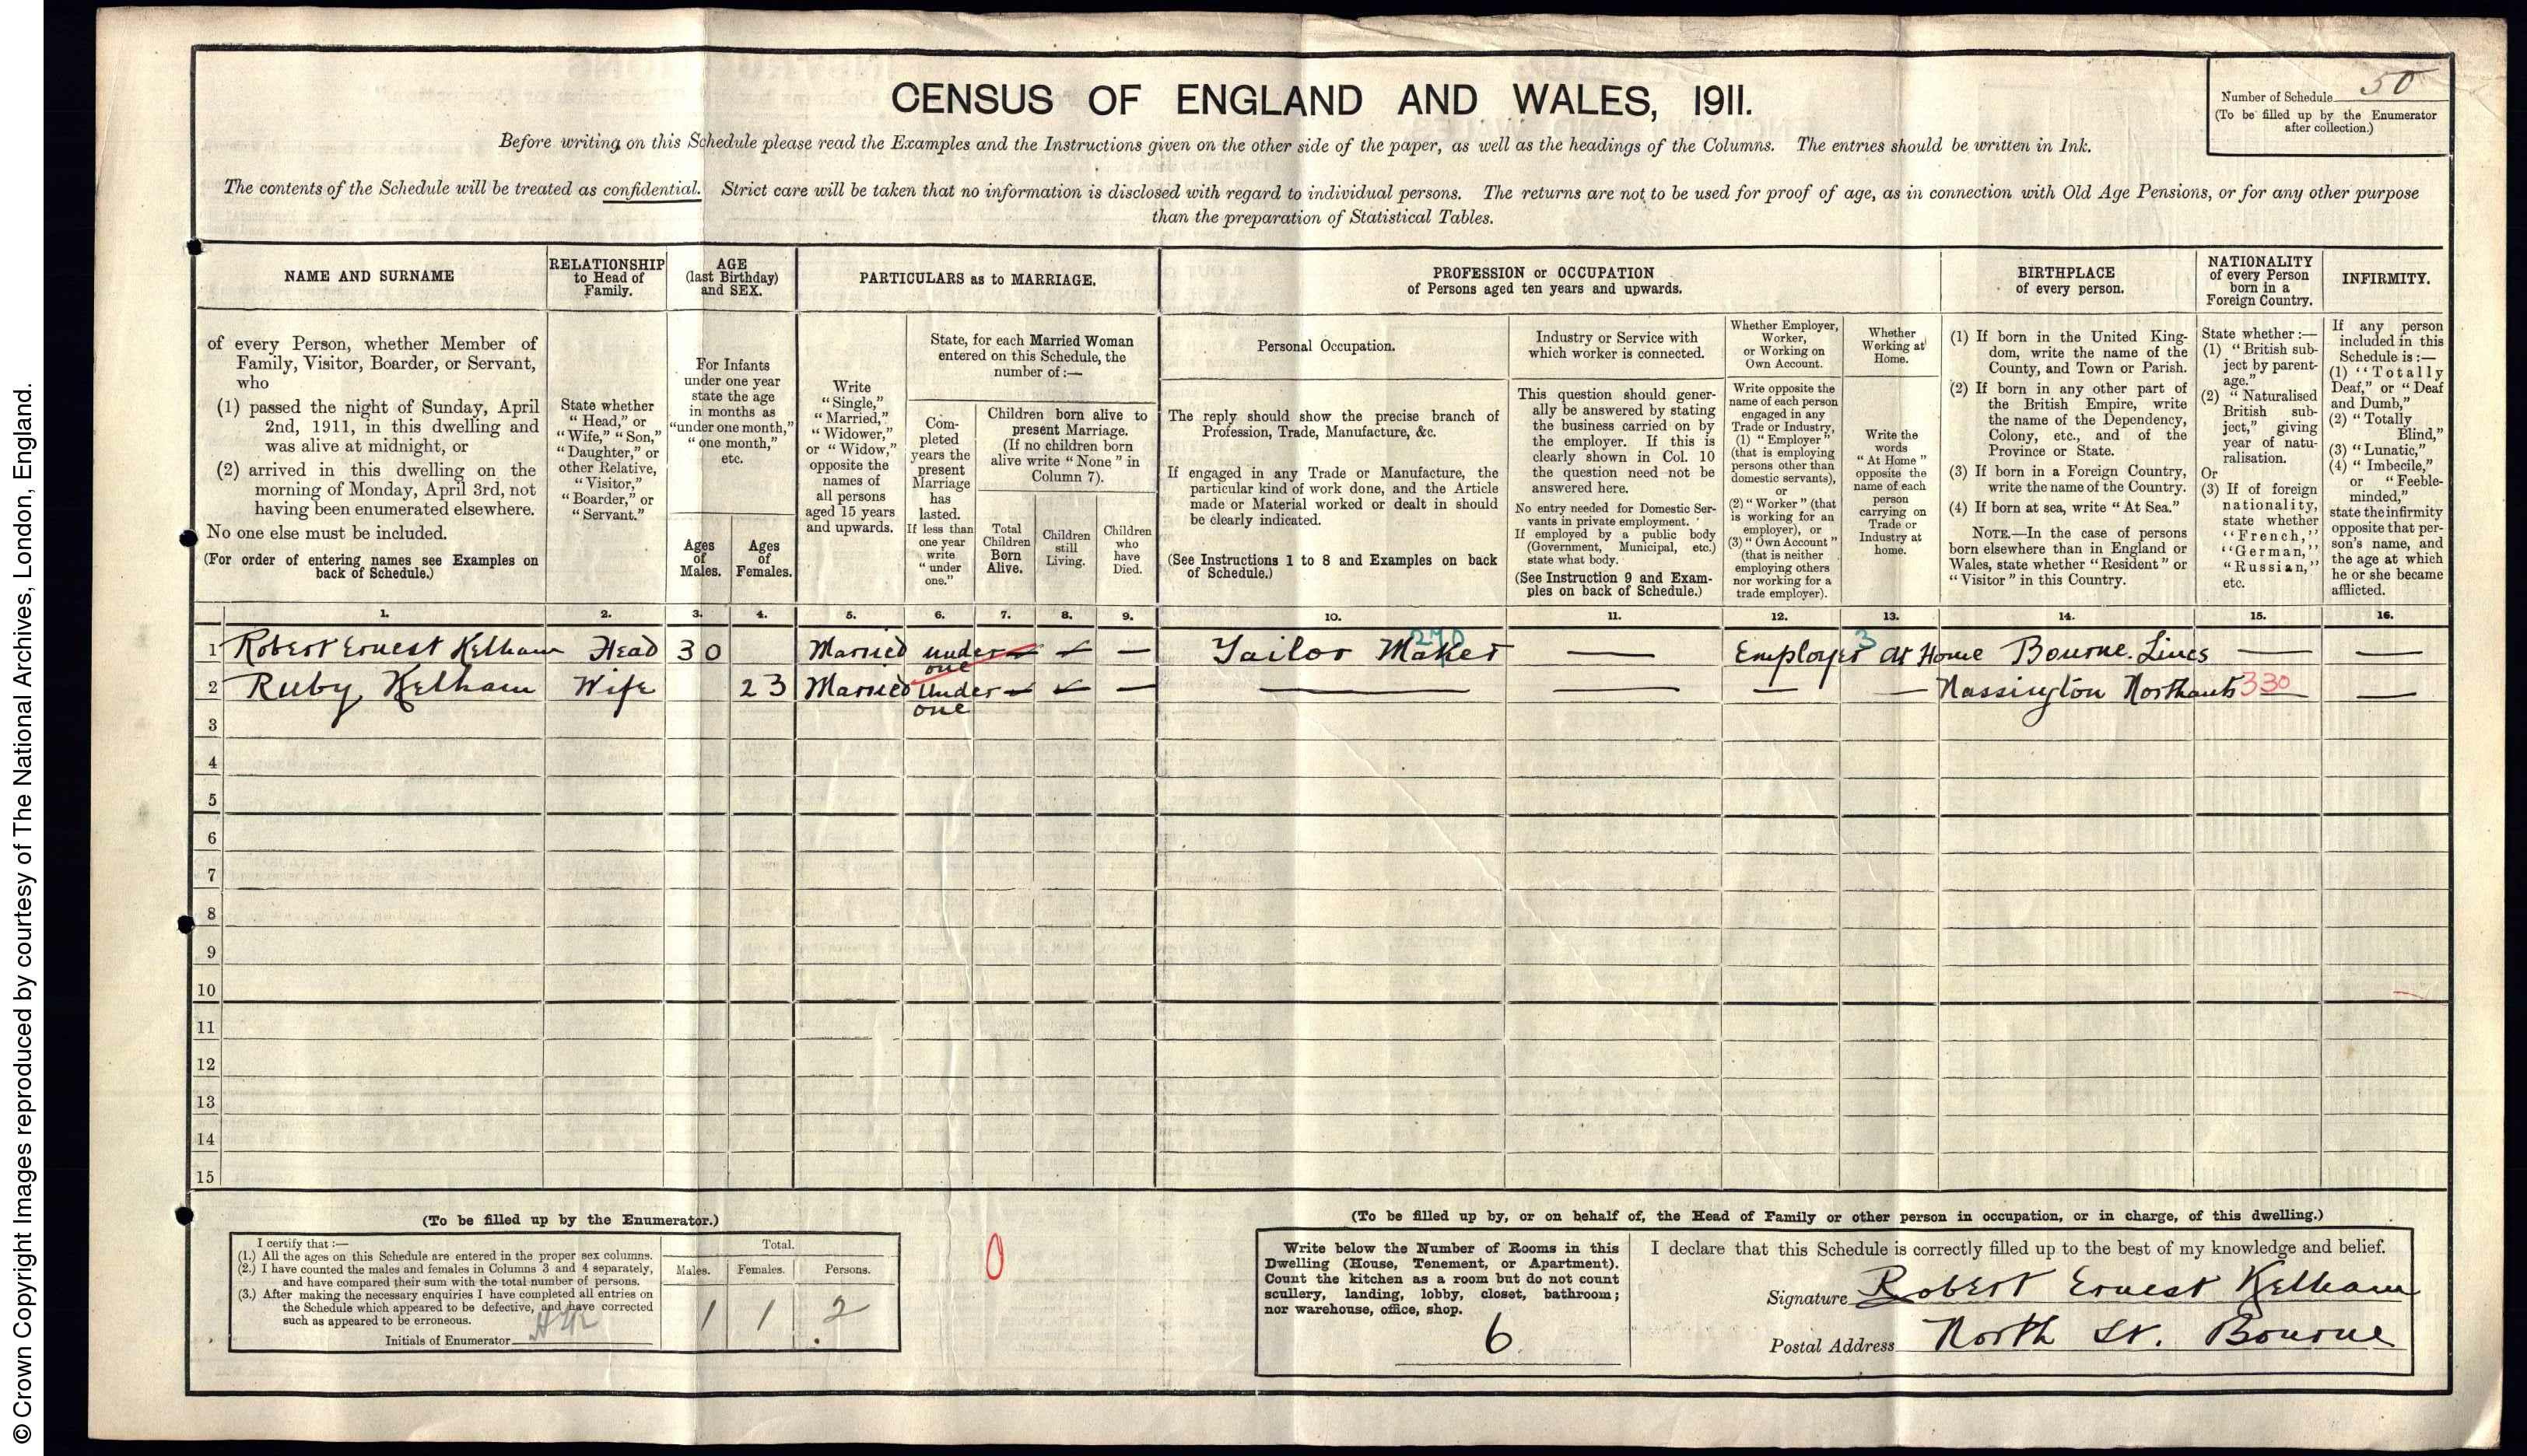 CENSUS OF ENGLAND AND WALES, 1911.
Number of Schedule 50
(To be filled up by the Enumerator
after collection.)
Before writing on this Schedule please read the Examples and the Instructions given on the other side of the paper, as well as the headings of the Columns. The entries should be written in Ink.
The contents of the Schedule will be treated as confidential. Strict care will be taken that no information is disclosed with regard to individual persons. The returns are not to be used for proof of age, as in connection with Old Age Pensions, or for any other purpose
than the preparation of Statistical Tables.
NAME AND SURNAME
of every Person, whether Member of
Family, Visitor, Boarder, or Servant,
who
(1) passed the night of Sunday, April
2nd, 1911, in this dwelling and
was alive at midnight, or
(2) arrived in this dwelling on the
morning of Monday, April 3rd, not
having been enumerated elsewhere.
No one else must be included.
(For order of entering names see Examples on
back of Schedule.)
RELATIONSHIP
to Head of
Family.
State whether
"Head," or
"Wife," "Son,"
"Daughter," or
other Relative,
"Visitor,"
"Boarder," or
"Servant."
AGE
(last Birthday)
and SEX.
For Infants
under one year
state the age
in months as
"under one month,"
"one month,"
etc.
Ages
of
Males.
Ages
of
Females.
PARTICULARS as to MARRIAGE.
Write
"Single,"
"Married,"
"Widower,"
or "Widow,"
opposite the
names of
all persons
aged 15 years
and upwards.
State, for each Married Woman
entered on this Schedule, the
number of:—
Com-
pleted
years the
present
Marriage
has
lasted.
If less than
one year
write
"under
one."
Children born alive to
present Marriage.
(If no children born
alive write "None" in
Column 7).
Total
Children
Born
Alive.
Children
still
Living.
Children
who
have
Died.
PROFESSION or OCCUPATION
of Persons aged ten years and upwards.
Personal Occupation.
The reply should show the precise branch of
Profession, Trade, Manufacture, &c.
If engaged in any Trade or Manufacture, the
particular kind of work done, and the Article
made or Material worked or dealt in should
be clearly indicated.
(See Instructions 1 to 8 and Examples on back
of Schedule.)
Industry or Service with
which worker is connected.
This question should gener-
ally be answered by stating
the business carried on by
the employer. If this is
clearly shown in Col. 10
the question need not be
answered here.
No entry needed for Domestic Ser-
vants in private employment.
If employed by a public body
(Government, Municipal, etc.)
state what body.
(See Instruction 9 and Exam-
ples on back of Schedule.)
Whether Employer,
Worker,
or Working on
Own Account.
Write opposite the
name of each person
engaged in any
Trade or Industry,
(1) "Employer"
(that is employing
persons other than
domestic servants),
or
(2) "Worker" (that
is working for an
employer), or
(3) "Own Account"
(that is neither
employing others
nor working for a
trade employer).
Whether
Working at
Home.
Write the
words
"At Home"
opposite the
name of each
person
carrying on
Trade or
Industry at
home.
BIRTHPLACE
of every person.
(1) If born in the United King-
dom, write the name of the
County, and Town or Parish.
(2) If born in any other part of
the British Empire, write
the name of the Dependency,
Colony, etc., and of the
Province or State.
(3) If born in a Foreign Country,
write the name of the Country.
(4) If born at sea, write "At Sea."
NOTE.—In the case of persons
born elsewhere than in England or
Wales, state whether "Resident" or
"Visitor" in this Country.
NATIONALITY
of every Person
born in a
Foreign Country.
State whether :—
(1) "British sub-
ject by parent-
age."
(2) "Naturalised
British sub-
ject," giving
year of natu-
ralisation.
Or
(3) If of foreign
nationality,
state whether
"French,"
"German,"
"Russian,"
etc.
INFIRMITY.
If any person
included in this
Schedule is :—
(1) "Totally
Deaf," or "Deaf
and Dumb,"
(2) "Totally
Blind,"
(3) "Lunatic,"
(4) "Imbecile,"
or "Feeble-
minded,"
state the infirmity
opposite that per-
son's name, and
the age at which
he or she became
afflicted.
1. 2. 3. 4. 5. 6. 7. 8. 9. 10. 11. 12. 13. 14. 15. 16.
1 Robert Ernest Kelham Head 30 Married under one — — — Tailor Maker 270 — Employer 3 At Home Bourne. Lincs — —
2 Ruby Kelham Wife 23 Married Under one — — — — — — — Nassington Northants 330 —
3
4
5
6
7
8
9
10
11
12
13
14
15
(To be filled up by the Enumerator.)
I certify that :—
(1.) All the ages on this Schedule are entered in the proper sex columns.
(2.) I have counted the males and females in Columns 3 and 4 separately,
and have compared their sum with the total number of persons.
(3.) After making the necessary enquiries I have completed all entries on
the Schedule which appeared to be defective, and have corrected
such as appeared to be erroneous.
Initials of Enumerator
Total.
Males. Females. Persons.
1 1 2
0
(To be filled up by, or on behalf of, the Head of Family or other person in occupation, or in charge, of this dwelling.)
Write below the Number of Rooms in this
Dwelling (House, Tenement, or Apartment).
Count the kitchen as a room but do not count
scullery, landing, lobby, closet, bathroom;
nor warehouse, office, shop.
6
I declare that this Schedule is correctly filled up to the best of my knowledge and belief.
Signature Robert Ernest Kelham
Postal Address North St. Bourne
© Crown Copyright Images reproduced by courtesy of The National Archives, London, England.